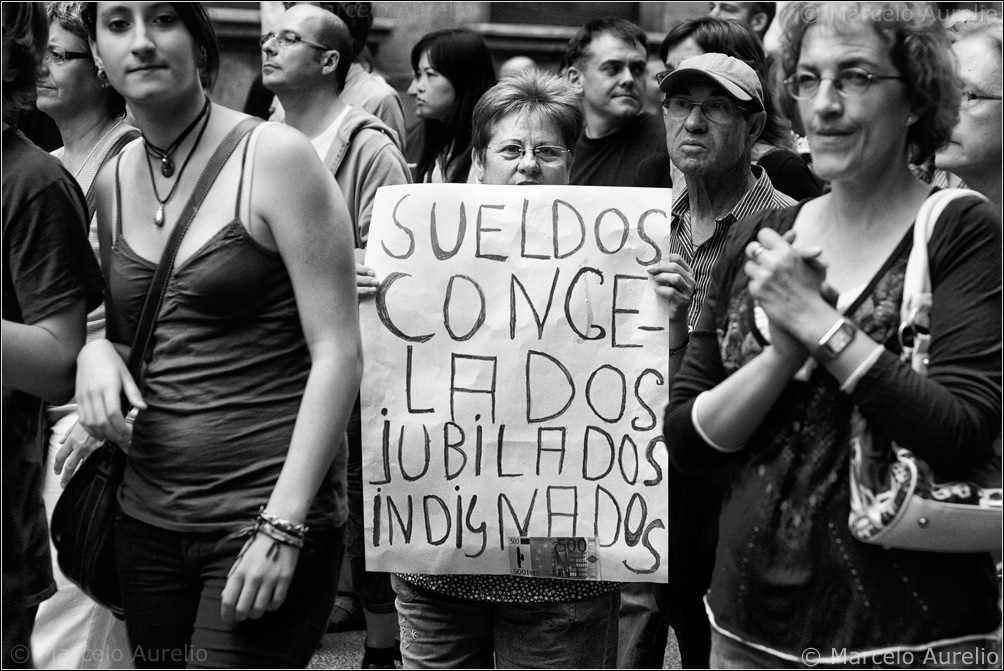 © Marcelo Aurelio
© Marcelo Aurelio
© Marcelo Aurelio
SUELDOS
CONGE-
LADOS
jUBiLADOS
iNDigNADOS
500
500
500
© Marcelo Aurelio
© Marcelo Aurelio